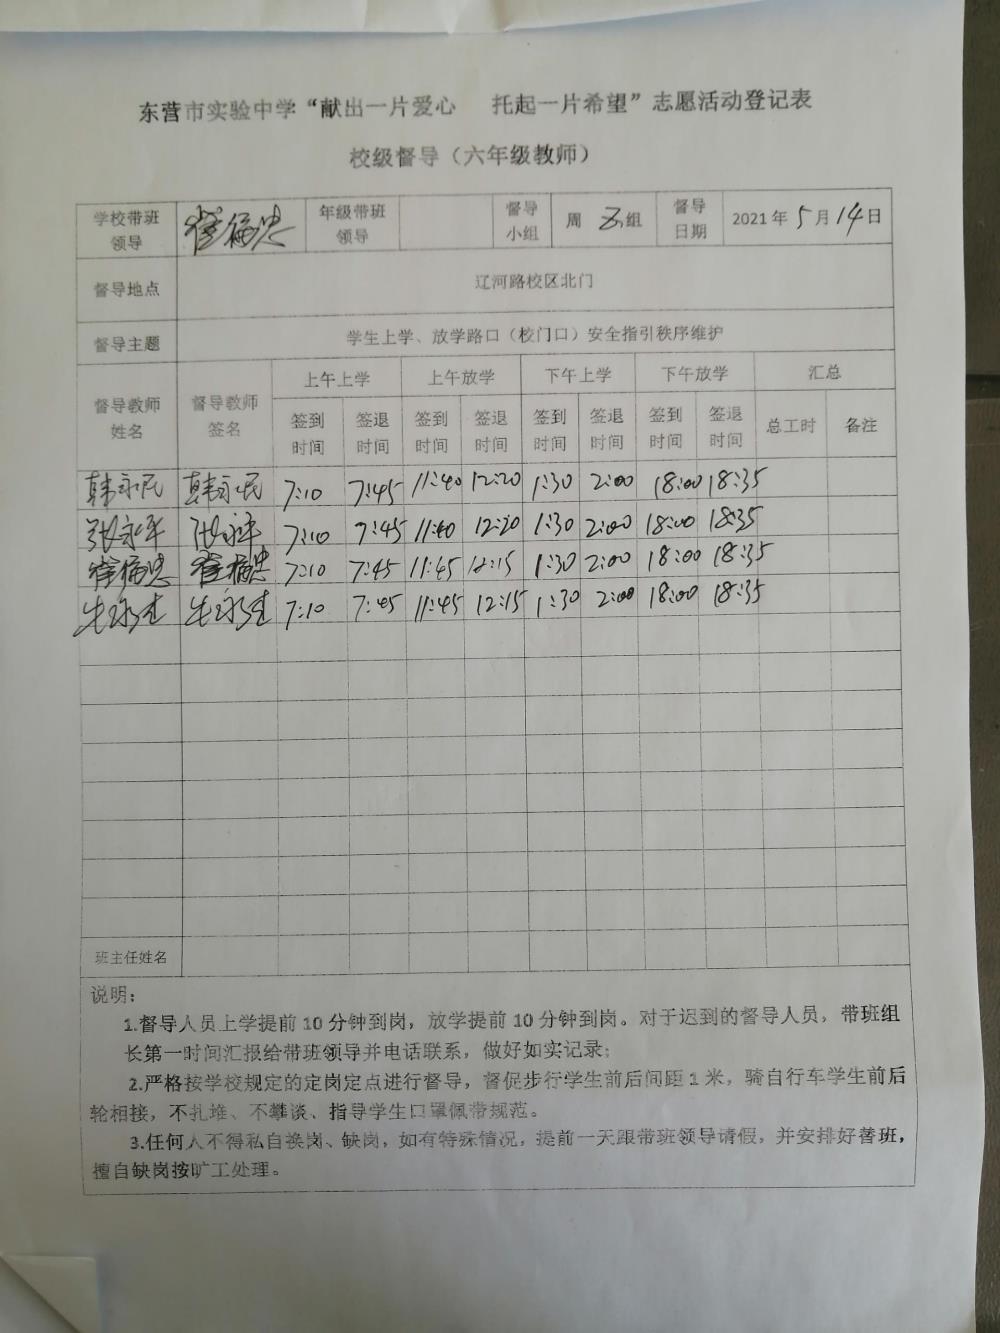 东营市实验中学“献出一片爱心 托起一片希望”志愿活动登记表
校级督导（六年级教师）
学校带班领导 崔福忠 年级带班领导 督导小组 周五组 督导日期 2021年5月14日
督导地点 辽河路校区北门
督导主题 学生上学、放学路口（校门口）安全指引秩序维护
督导教师姓名 督导教师签名 上午上学 上午放学 下午上学 下午放学 汇总
签到时间 签退时间 签到时间 签退时间 签到时间 签退时间 签到时间 签退时间 总工时 备注
韩永民 韩永民 7:10 7:45 11:40 12:20 1:30 2:00 18:00 18:35
张永平 张永平 7:10 7:45 11:40 12:20 1:30 2:00 18:00 18:35
崔福忠 崔福忠 7:10 7:45 11:45 12:15 1:30 2:00 18:00 18:35
牛永 牛永 7:10 7:45 11:45 12:15 1:30 2:00 18:00 18:35
班主任姓名
说明：
1.督导人员上学提前10分钟到岗，放学提前10分钟到岗。对于迟到的督导人员，带班组
长第一时间汇报给带班领导并电话联系，做好如实记录；
2.严格按学校规定的定岗定点进行督导，督促步行学生前后间距1米，骑自行车学生前后
轮相接，不扎堆、不攀谈、指导学生口罩佩带规范。
3.任何人不得私自换岗、缺岗，如有特殊情况，提前一天跟带班领导请假，并安排好替班，
擅自缺岗按旷工处理。